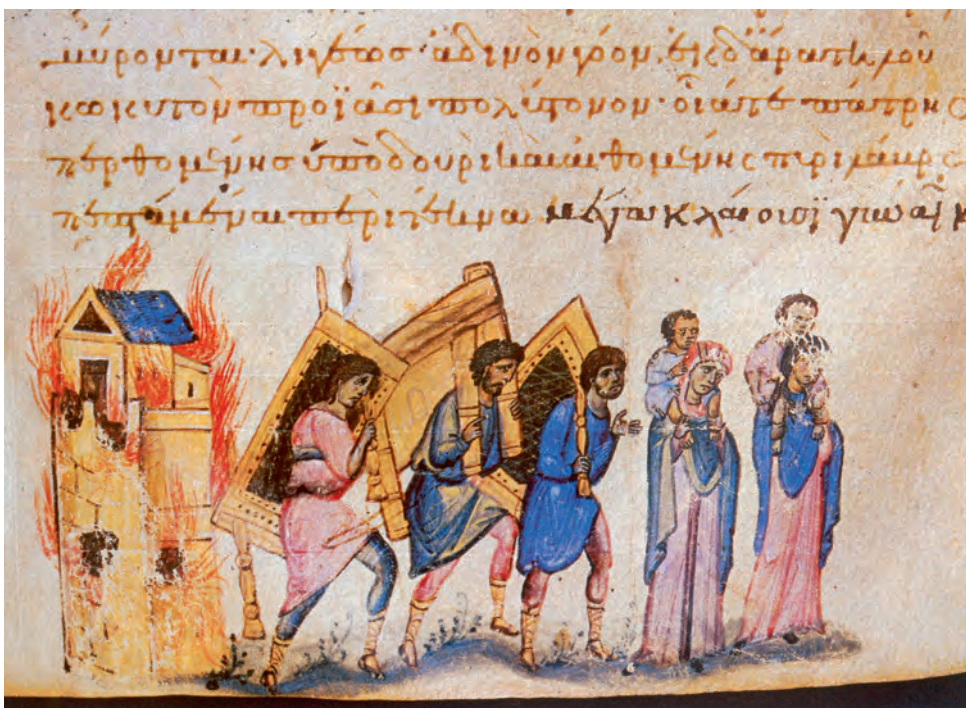 μύρονται· λιγέωσ ἀδινὸν γόον, ἐκ δ᾽ ἄρα τηλοῦ
κωκυτὸν προϊᾶσι πολύπονον· οἷάτε πάτρης
περθομένης ὑπὸ δουρὶ καὶ αἰθομένης περὶ
πεπταμέναι περὶ τέκνα μέγα κλάοισϊ γυναῖκ